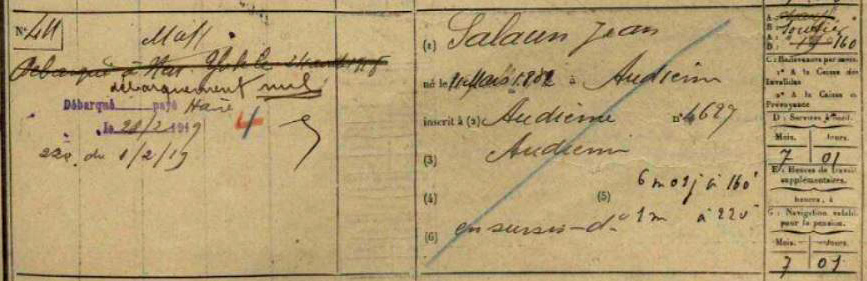 N° 411
Mast
Débarqué à New York le 24 août 1918
débarquement nul
Débarqué payé Havre
le 28/2 1919
4
220 du 1/2/19
(1) Salaun Jean
né le 11 Mars 1882 à Audierne
inscrit à (2) Audierne n° 4627
(3) Audierne
(4) (5) 6 m 01 j à 160
(6) en sursis - d° 1 m à 220
A:
B: 160
C : Redevances par mois:
1° A la Caisse des
Invalides
2° A la Caisse de
Prévoyance
D : Services à l'ext.
Mois. Jours.
7 01
E : Heures de travail
supplémentaires.
heures, à
G : Navigation valabl.
pour la pension.
Mois. Jours.
7 01